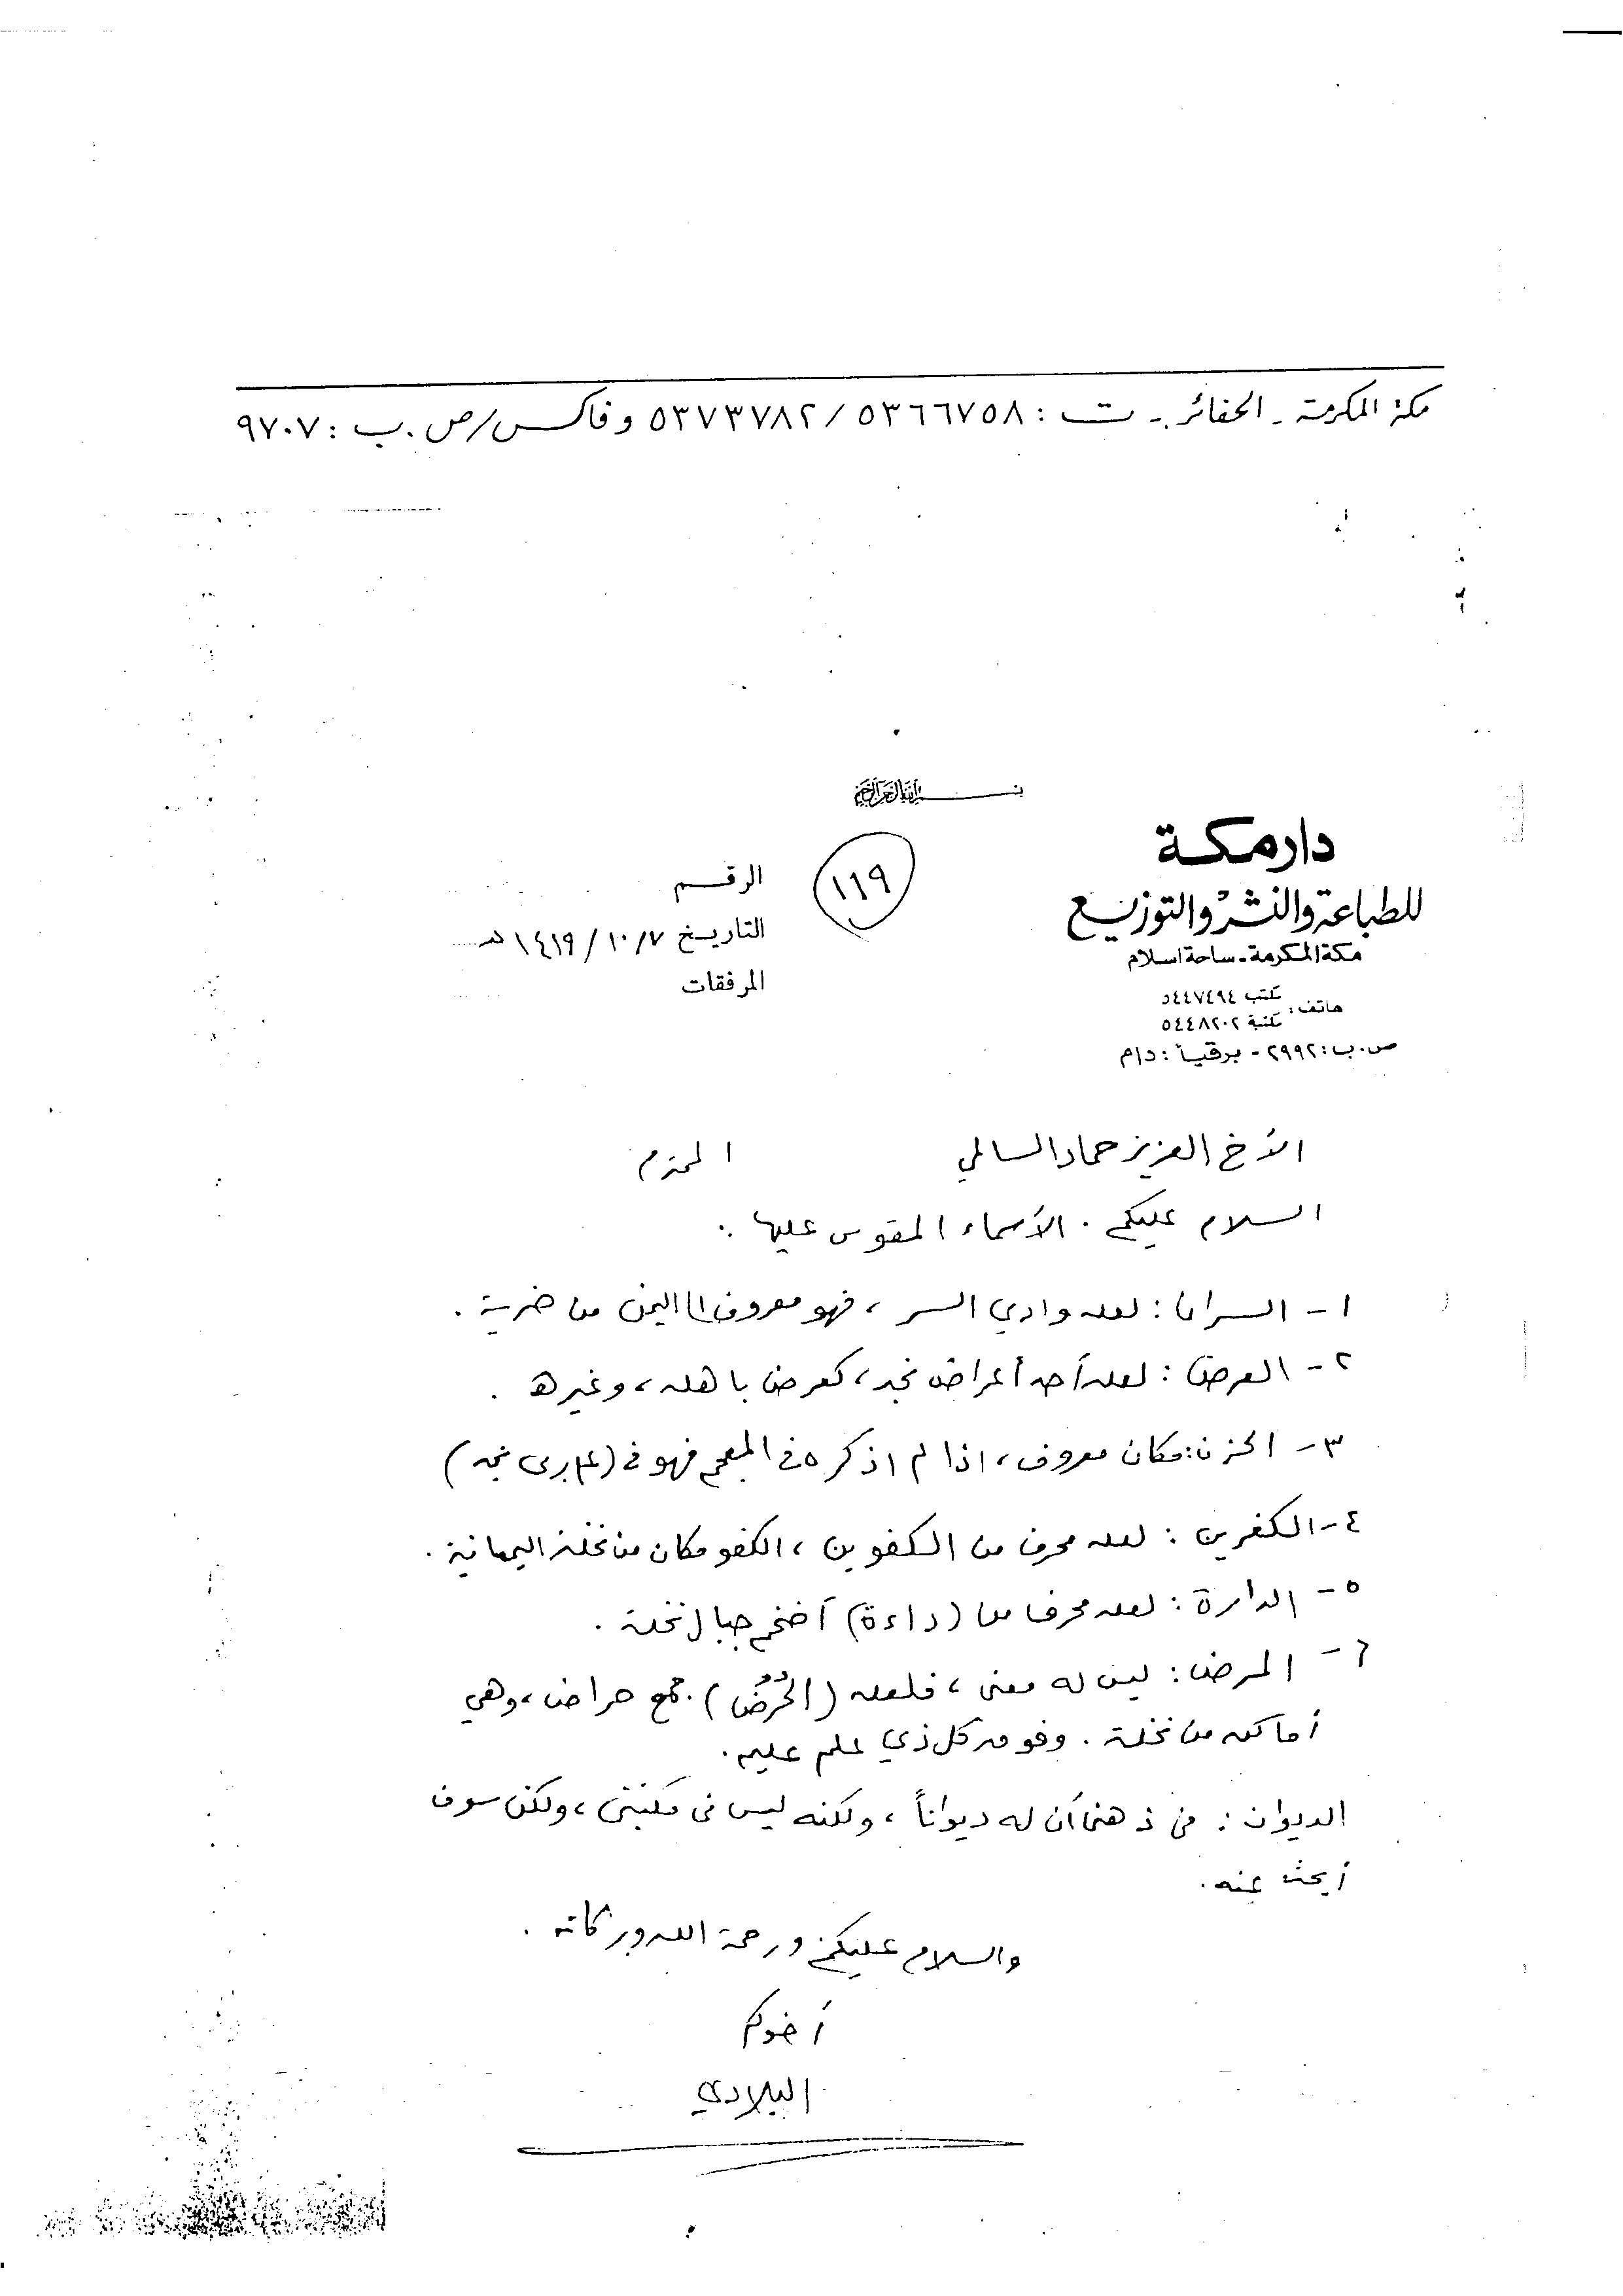 مكة المكرمة - الحفائر - ت : ٥٣٦٦٧٥٨ / ٥٣٧٣٧٨٢ وفاكس/ص.ب : ٩٧٠٧
بسم الله الرحمن الرحيم
دار مكة
للطباعة والنشر والتوزيع
مكة المكرمة - ساحة اسلام
هاتف : مكتب ٥٤٤٧٤٩٤
مكتبة ٥٤٤٨٢٠٢
ص.ب : ٢٩٩٢ - برقياً : دام
١١٩
الرقم
التاريخ ١٤١٩/١٠/٧ هـ
المرفقات
الأخ العزيز حماد السالمي المحترم
السلام عليكم . الأسماء المقوس عليها :
١- السران : لعله وادي السر ، فهو معروف اليمن من ضرية .
٢- العرض : لعله أحد أعراض نجد ، كعرض باهله ، وغيره .
٣- الحزن : مكان معروف ، اذا لم اذكره في المعجم فهو في ( نجد )
٤- الكفرين : لعله محرف من الكفوين ، الكفو مكان من نخلة اليمانية .
٥- الدارة : لعله محرف من (داءة) أضخم جبال نخلة .
٦- المرض : ليس له معنى ، فلعله (الحُرُضُ) . جمع حراض ، وهي
أماكن من نخلة . وفوق كل ذي علم عليم .
الديوان : في ذهني أن له ديواناً ، ولكنه ليس في مكتبتي ، ولكن سوف
أبحث عنه .
والسلام عليكم ورحمة الله وبركاته .
أخوكم
البلادي